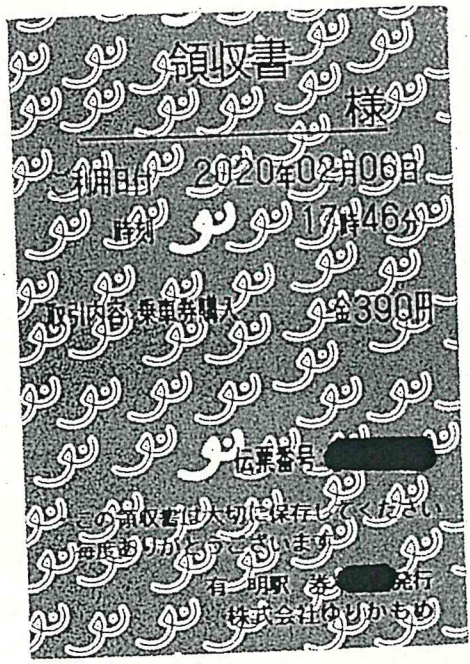 領収書
様
ご利用日付 2020年02月06日
時刻 17時46分
取引内容 乗車券購入 金390円
伝票番号
この領収書は大切に保存してください
毎度ありがとうございます
有明駅 券 発行
株式会社ゆりかもめ